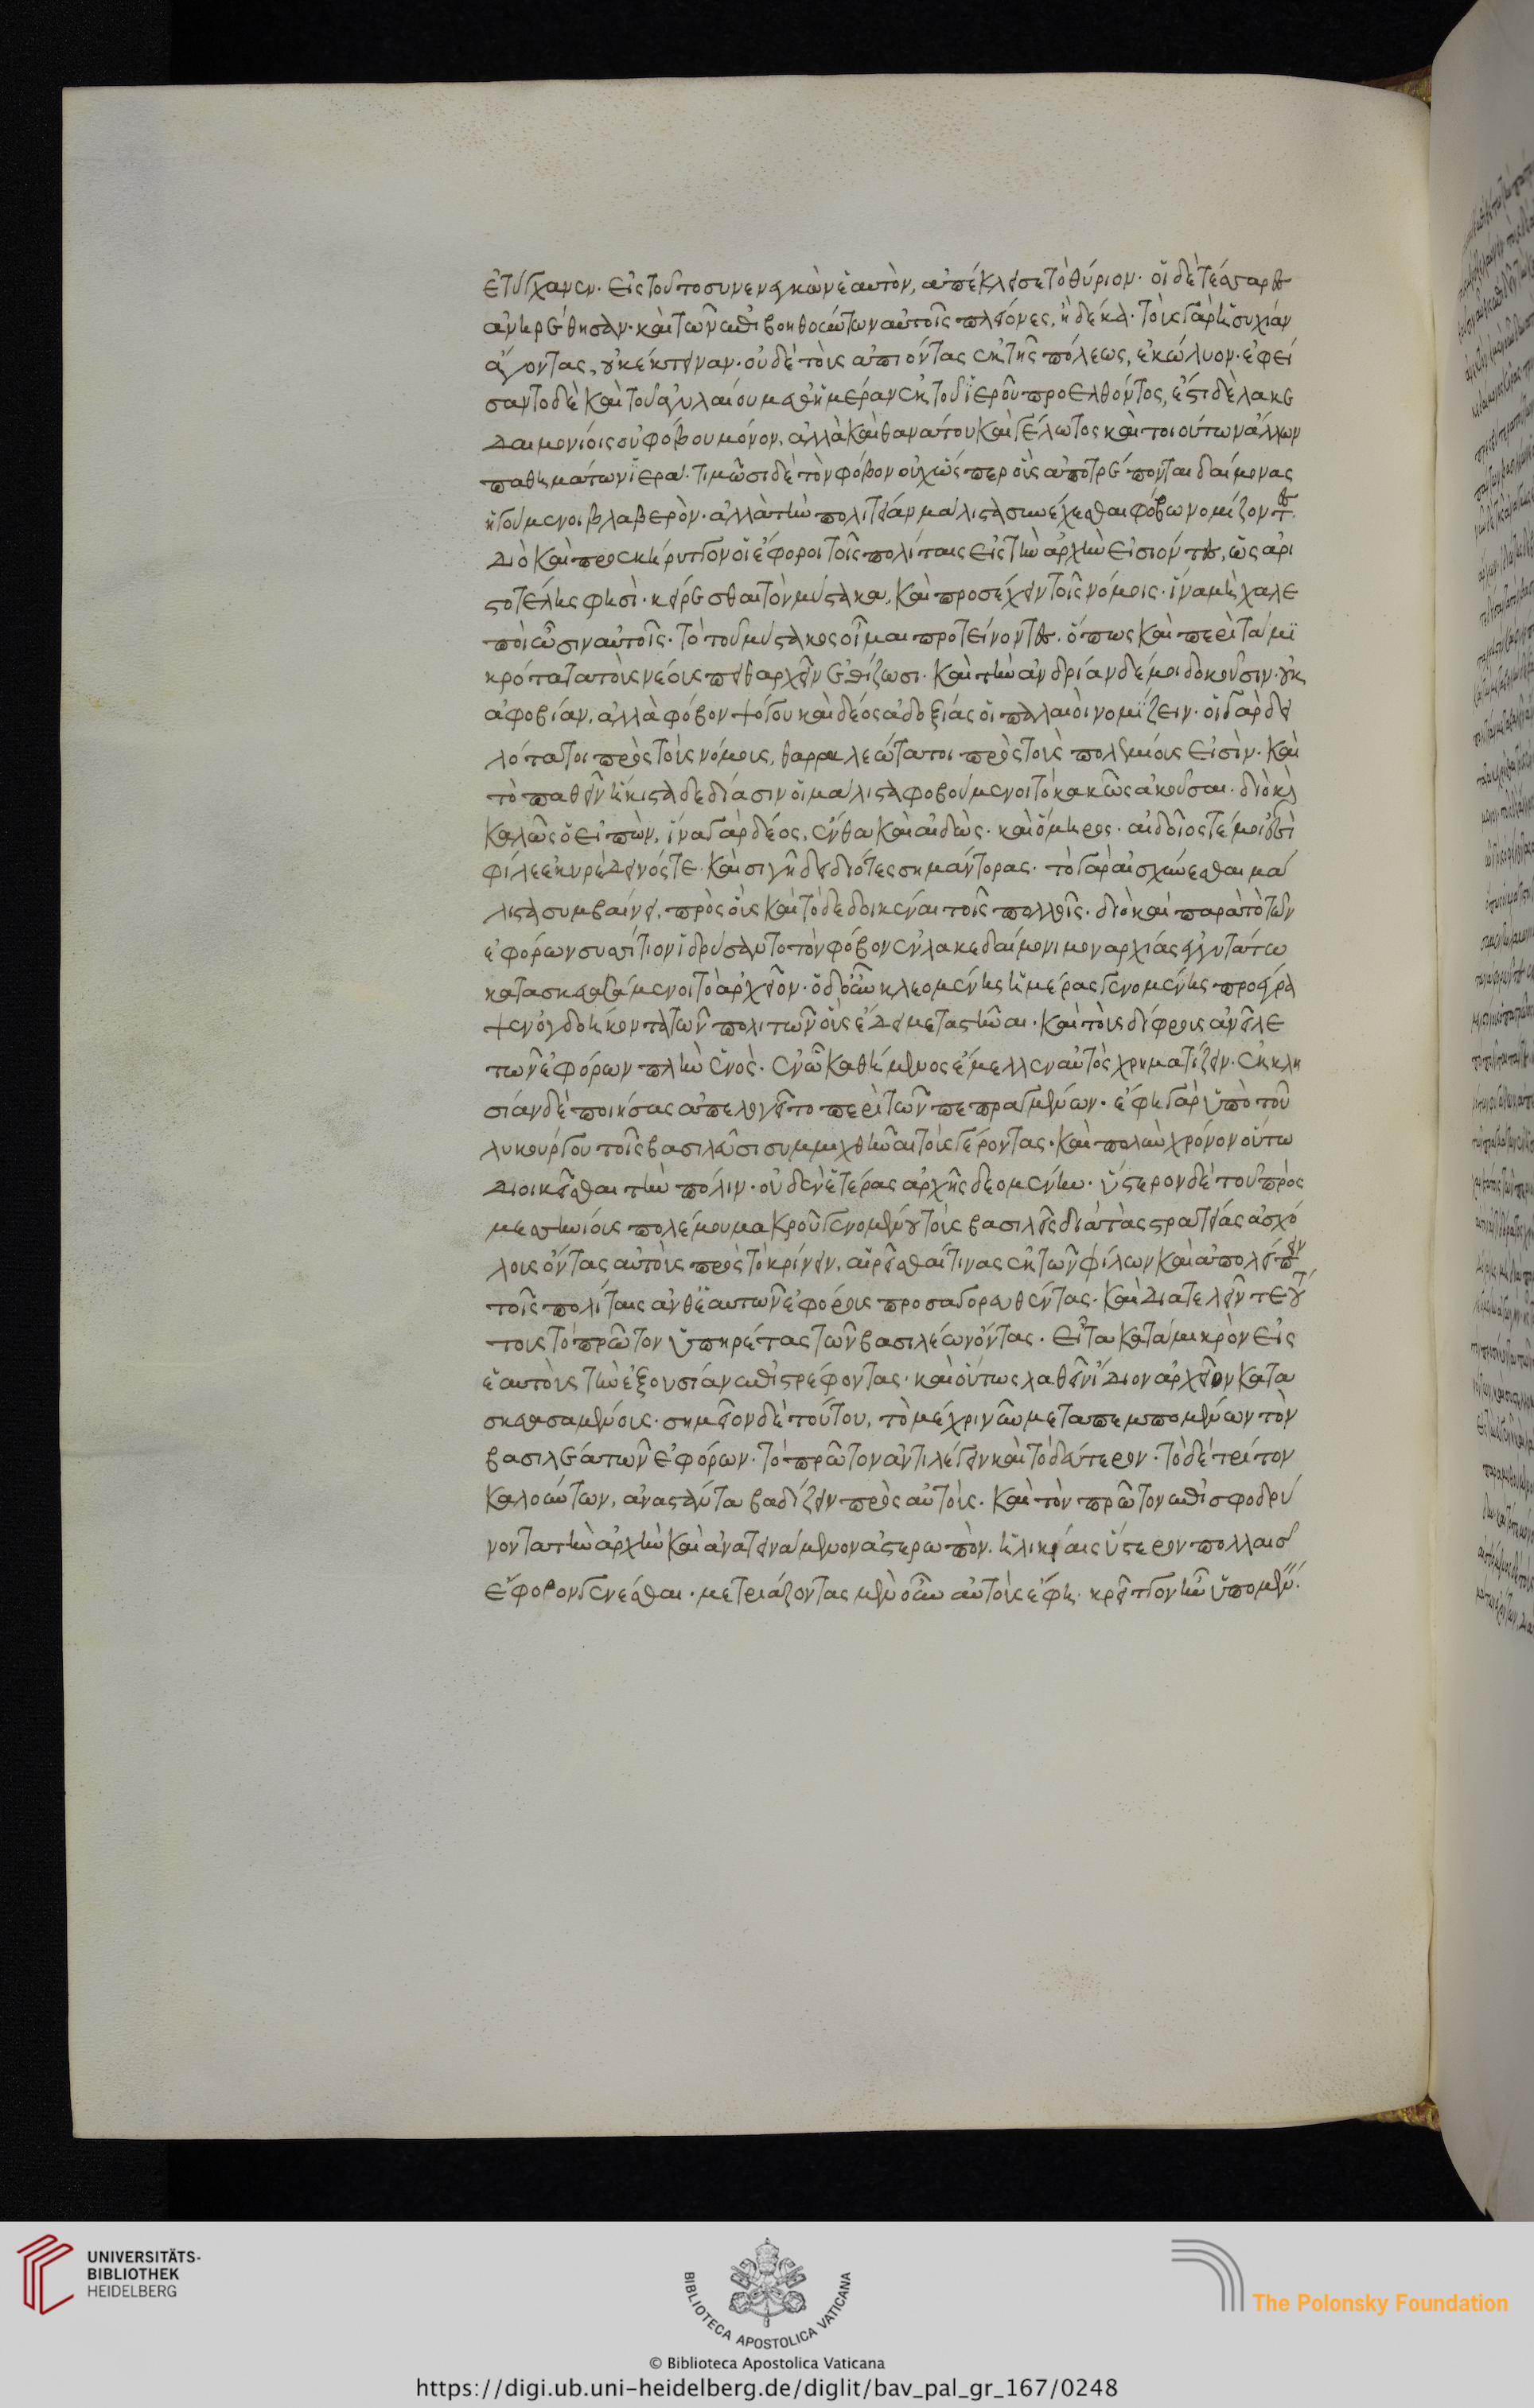 ἐτύγχανεν· εἰς τοῦτο συνενεγκὼν ἑαυτὸν, ἀπέκλεισε τὸ θύριον· οἱ δὲ τέσσαρες
ἀνῃρέθησαν· καὶ τῶν ἐπιβοηθούντων αὐτοῖς πλείονες, ἢ δέκα· τοὺς γὰρ ἡσυχίαν
ἄγοντας, οὐκ ἔκτειναν· οὐδὲ τοὺς ἀπιόντας ἐκ τῆς πόλεως, ἐκώλυον· ἐφεί
σαντο δὲ καὶ τοῦ ἀγυλαίου μεθ' ἡμέραν ἐκ τοῦ ἱεροῦ προελθόντος, ἔστι δὲ λακε
δαιμονίοις οὐ φόβου μόνον, ἀλλὰ καὶ θανάτου καὶ γέλωτος καὶ τοιούτων ἄλλων
παθημάτων ἱερά· τιμῶσι δὲ τὸν φόβον οὐχ ὥσπερ οὓς ἀποτρέπονται δαίμονας
ἡγούμενοι βλαβερὸν· ἀλλὰ τὴν πολιτείαν μάλιστα συνέχεσθαι φόβω νομίζοντες·
διὸ καὶ προεκήρυττον οἱ ἔφοροι τοῖς πολίταις εἰς τὴν ἀρχὴν εἰσιόντες, ὡς ἀρι
στοτέλης φησὶ· κείρεσθαι τὸν μύστακα, καὶ προσέχειν τοῖς νόμοις· ἵνα μὴ χαλε
ποὶ ὦσιν αὐτοῖς· τὸ τοῦ μύστακος οἶμαι προτείνοντες· ὅπως καὶ περὶ τὰ μϊ
κρότατα τοὺς νέους πειθαρχεῖν ἐθίζωσι· καὶ τὴν ἀνδρίαν δέ μοι δοκοῦσιν· οὐκ
ἀφοβίαν, ἀλλὰ φόβον ψόγου καὶ δέος ἀδοξίας οἱ παλαιοὶ νομίζειν· οἱ γὰρ δει
λότατοι πρὸς τοὺς νόμους, θαρραλεώτατοι πρὸς τοὺς πολεμίους εἰσὶν· καὶ
τὸ παθεῖν ἥκιστα δεδίασιν οἱ μάλιστα φοβούμενοι τὸ κακῶς ἀκοῦσαι· διὸ καὶ
καλῶς ὁ εἰπὼν, ἵνα γὰρ δέος, ἔνθα καὶ αἰδὼς· καὶ ὅμηρος· αἰδοῖός τέ μοι ἐσσὶ
φίλε ἑκυρὲ δεινός τε· καὶ σιγῆ δειδιότες σημάντορας· τὸ γὰρ αἰσχύνεσθαι μά
λιστα συμβαίνει, πρὸς οὓς καὶ τὸ δεδοικέναι τοῖς πολλοῖς· διὸ καὶ παρὰ τὸ τῶν
ἐφόρων συσσίτιον ἱδρύσαντο τὸν φόβον ἐν λακεδαίμονι μοναρχίας ἐγγυτάτω
κατασκευασάμενοι τὸ ἀρχεῖον· ὁ δ' οὖν κλεομένης ἡμέρας γενομένης προέγρα
ψεν ὀγδοήκοντα τῶν πολιτῶν οὓς ἔδει μεταστῆναι· καὶ τοὺς δίφρους ἀνεῖλε
τῶν ἐφόρων πλὴν ἑνὸς· ἐν ᾧ καθήμενος ἔμελλεν αὐτὸς χρηματίζειν· ἐκκλη
σίαν δὲ ποιήσας ἀπελογεῖτο περὶ τῶν πεπραγμένων· ἔφη γὰρ ὑπὸ τοῦ
λυκούργου τοῖς βασιλεῦσι συμμιχθῆναι τοὺς γέροντας· καὶ πολὺν χρόνον οὕτω
διοικεῖσθαι τὴν πόλιν· οὐδὲν ἑτέρας ἀρχῆς δεομένην· ὕστερον δὲ τοῦ πρὸς
μεσσηνίους πολέμου μακροῦ γενομένου τοὺς βασιλεῖς διὰ τὰς στρατείας ἀσχό
λους ὄντας αὐτοὺς πρὸς τὸ κρίνειν, αἱρεῖσθαί τινας ἐκ τῶν φίλων καὶ ἀπολείπειν
τοῖς πολίταις ἀνθ' ἑαυτῶν ἐφόρους προσαγορευθέντας· καὶ διατελεῖν τού
τους τὸ πρῶτον ὑπηρέτας τῶν βασιλέων ὄντας· εἶτα κατὰ μικρὸν εἰς
ἑαυτοὺς τὴν ἐξουσίαν ἐπιστρέφοντας· καὶ οὕτως λαθεῖν ἴδιον ἀρχεῖον κατα
σκευασαμένους· σημεῖον δὲ τούτου, τὸ μέχρι νῦν μεταπεμπομένων τὸν
βασιλέα τῶν ἐφόρων· τὸ πρῶτον ἀντιλέγειν καὶ τὸ δεύτερον· τὸ δὲ τρίτον
καλούντων, ἀναστάντα βαδίζειν πρὸς αὐτοὺς· καὶ τὸν πρῶτον ἐπισφοδρύ
νοντα τὴν ἀρχὴν καὶ ἀνατεινάμενον ἀστερωπὸν· ἡλικίαις ὕστερον πολλαῖς
ἔφορον γενέσθαι· μετριάζοντας μὲν οὖν αὐτοὺς ἔφη· κρεῖττον ἦν ὑπομέν·
UNIVERSITÄTS-
BIBLIOTHEK
HEIDELBERG
BIBLIOTECA APOSTOLICA VATICANA
The Polonsky Foundation
© Biblioteca Apostolica Vaticana
https://digi.ub.uni-heidelberg.de/diglit/bav_pal_gr_167/0248